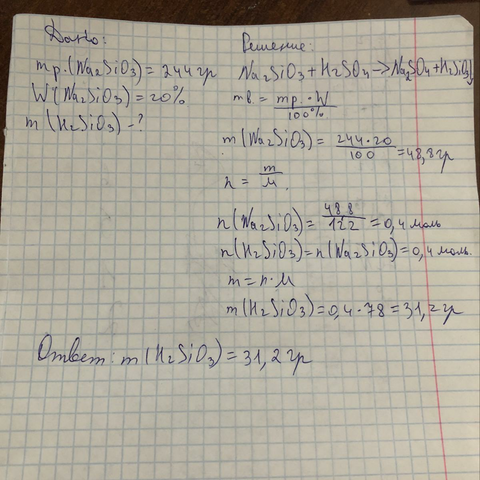 Дано:
mр.(Na2SiO3)=244гр
W(Na2SiO3)=20%
m(H2SiO3)-?
Решение:
Na2SiO3+H2SO4->Na2SO4+H2SiO3↓
mв.=mр.·W/100%
m(Na2SiO3)=244·20/100=48,8гр
n=m/M.
n(Na2SiO3)=48 8/122=0,4моль
n(H2SiO3)=n(Na2SiO3)=0,4моль.
m=n·M
m(H2SiO3)=0,4·78=31,2гр
Ответ: m(H2SiO3)=31,2гр